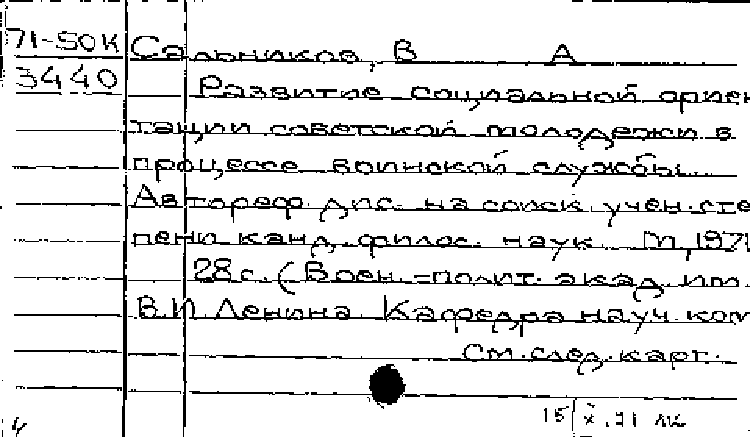 71-50К Сальников, В А
3440 Развитие социальной ориен
тации советской молодежи в
процессе воинской службы.
Автореф. дис. на соиск учен.сте
пени канд. филос. наук М, 1971
28с. (Воен.-полит. акад. им.
В.И Ленина Кафедра науч. ком
См.след.карт.
15/X.71